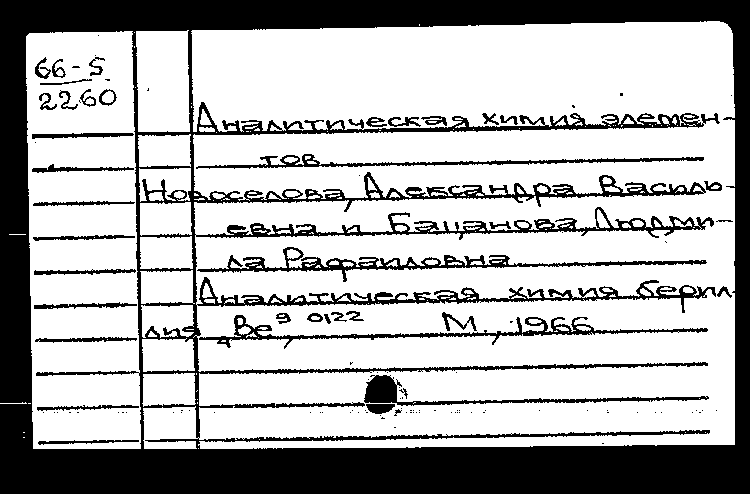 66-5
2260
Аналитическая химия элемен-
тов.
Новоселова, Александра Василь-
евна и Бацанова, Людми-
ла Рафаиловна.
Аналитическая химия берил-
лия, ₄Be⁹·⁰¹²². М., 1966